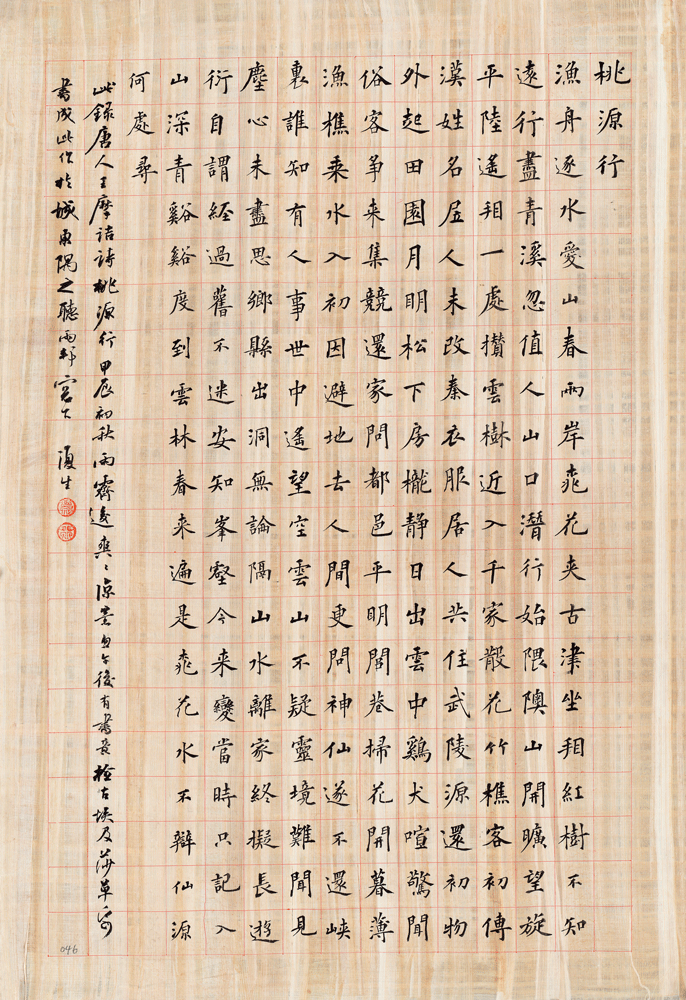 桃源行
漁舟逐水愛山春兩岸桃花夾古津坐相紅樹不知
遠行盡青溪忽值人山口潛行始隈隩山開曠望旋
平陸遙相一處攢雲樹近入千家散花竹樵客初傳
漢姓名居人未改秦衣服居人共住武陵源還初物
外起田園月明松下房櫳静日出雲中鷄犬喧驚聞
俗客争来集競還家問都邑平明閭巷掃花開暮薄
漁樵乘水入初因避地去人間更問神仙遂不還峽
裏誰知有人事世中遙望空雲山不疑靈境難聞見
塵心未盡思鄉縣出洞無論隔山水離家終擬長遊
衍自謂經過舊不迷安知峯壑今来變當時只記入
山深青谿谿度到雲林春来遍是桃花水不辯仙源
何處尋
此錄唐人王摩詰詩桃源行甲辰初秋雨霽送爽〻涼意午後有書檢古埃及莎草
書成此作於城東隅之聽雨軒窗下 復生
046